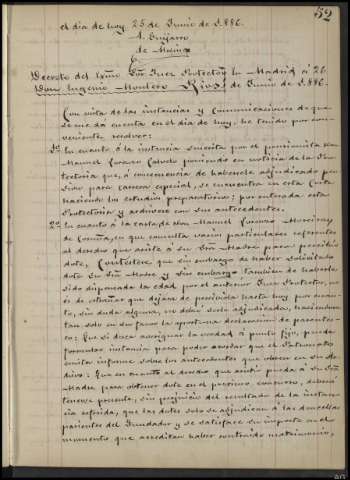 52
el dia de hoy, 25 de Junio de 1.886.
A. Guijarro
de Muñiz
Decreto del Exmo Sor Juez Protector en Madrid á 26
Don Eugenio Montero Rios; de Junio de 1.886.
Con vista de las instancias y comunicaciones de que
se me da cuenta en el dia de hoy, he tenido por con-
veniente resolver:
1º En cuanto á la instancia suscrita por el pensionista Don
Manuel Calvelo poniendo en noticia de la Pro-
tectoria que, á consecuencia de habersele adjudicado pen-
sion para carrera especial, se encuentra en esta Corte
haciendo los estudios preparatorios: por enterada esta
Protectoria y archivese con sus antecedentes.
2º En cuanto á la carta de Don Manuel
de Coruña, en que consulta varios particulares referentes
al derecho que asista á su Sra Madre para percibir
dote, Contéstese que sin embargo de haber solicitado
dote su Sra Madre y sin embargo tambien de haberle
sido dispensada la edad por el anterior Juez Protector, no
es de estrañar que dejara de percibirla hasta hoy, por cuanto
to, sin duda alguna, no debio serle adjudicada, haciendose
tan solo en su favor la oportuna declaracion de parentes-
co: Que si desea averiguar la verdad á punto fijo, puede
formular instancia para poder acordar que el Patronato
emita informe sobre los antecedentes que obren en su Ar-
chivo: Que en cuanto al derecho que asistir pueda á su Sra
Madre para obtener dote en el proximo concurso, debera
tenerse presente, sin perjuicio del resultado de la instan-
cia referida, que las dotes solo se adjudican á las doncellas
parientes del Fundador y se satisface su importe en el
momento que acreditan haber contraido matrimonio,